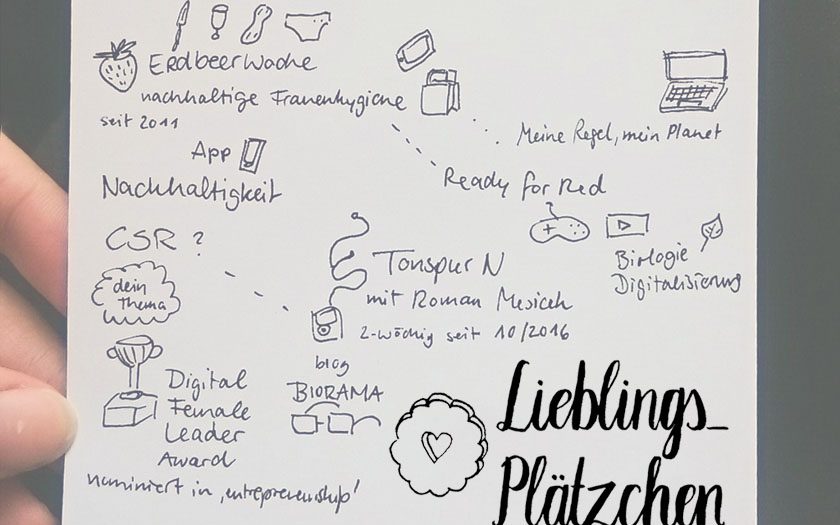 Erdbeerwoche
nachhaltige Frauenhygiene
seit 2011
Meine Regel, mein Planet
App
Ready for Red
Nachhaltigkeit
CSR ?
Biologie
Digitalisierung
dein
Thema
Tonspur N
mit Roman Mesicek
2-wöchig seit 10/2016
blog
BIORAMA
Digital
Female
Leader
Award
nominiert in 'entrepreneurship'
Lieblings_
Plätzchen